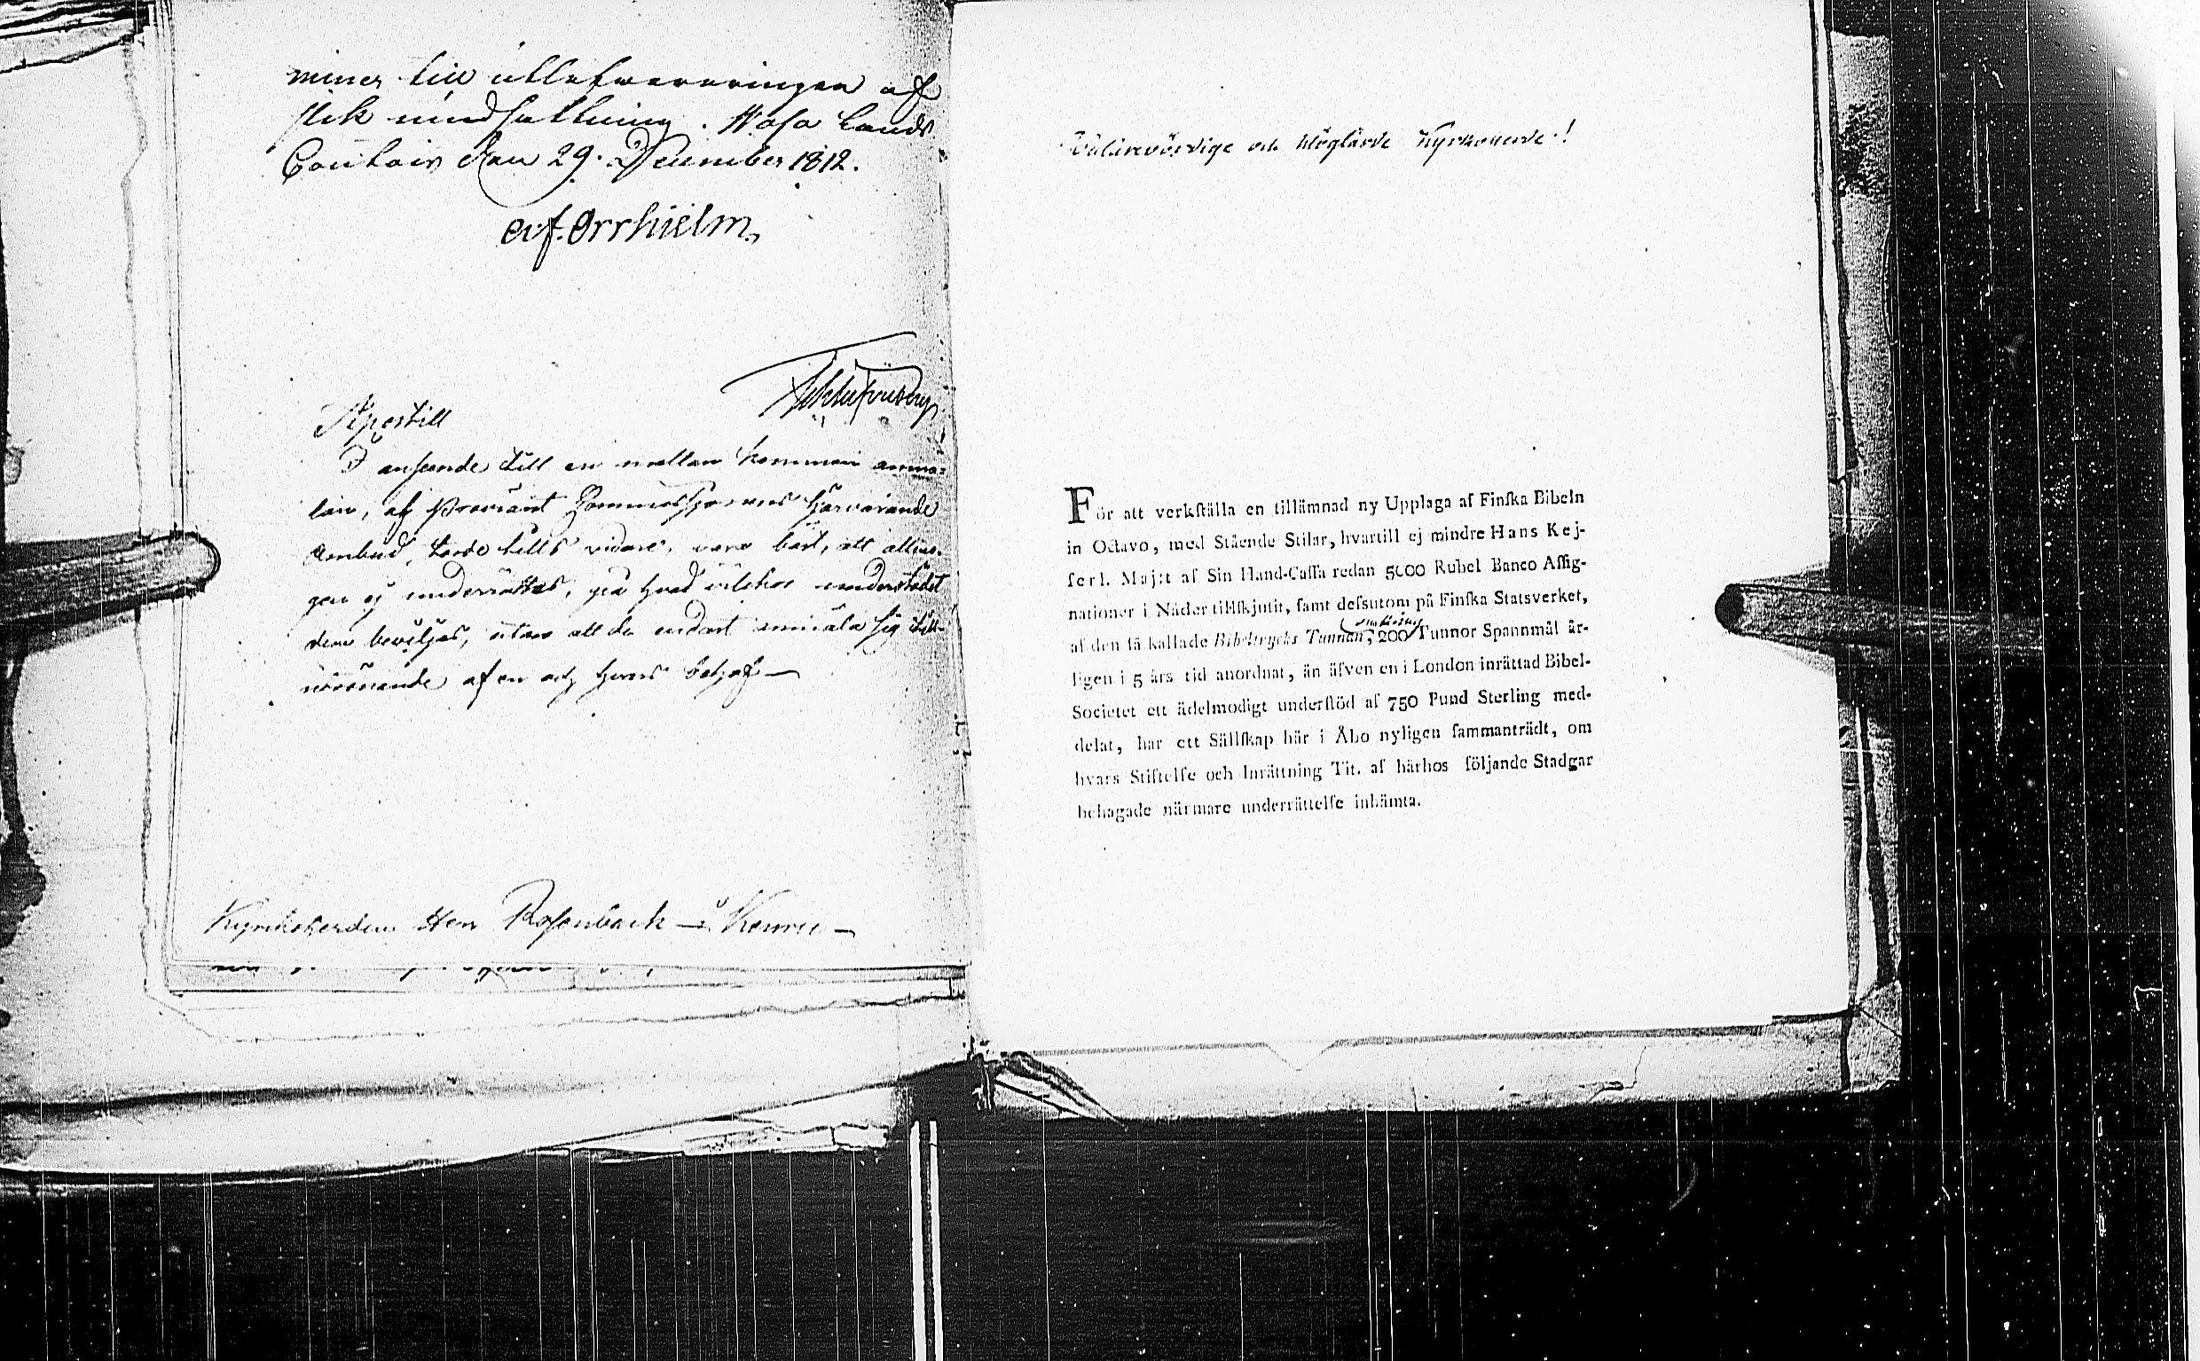 miner till utlefwereringen af
slik undsättning. Wasa Lands
Contoir den 29. December 1812.
af. Orrhielm.
Apostill
I anseende till en mellan kommen anmä-
lan, af Proviant Commissionens härvarande
Ombud, torde tills vidare, vara bäst, att allmo-
gen ej underrättas, på hvad vilckor understödet
den beviljas, utan att de endast anmäla sig till-
njutande af en och hvars behof —
Kyrkoherden Herr Rosenback i Kemi —
Välärevördige och Höglärde Kyrkoherde!
För att verkſtälla en tillämnad ny Upplaga af Finſka Bibeln
in Octavo, med Stående Stilar, hvartill ej mindre Hans Kej-
ſerl. Maj:t af Sin Hand-Caſſa redan 5000 Rubel Banco Aſſig-
nationer i Nåder tillſkjutit, ſamt deſsutom på Finſka Statsverket,
af den ſå kallade Bibeltrycks Tunnan, 200 Tunnor Spannmål år-
ligen i 5 års tid anordnat, än äfven en i London inrättad Bibel-
Societet ett ädelmodigt underſtöd af 750 Pund Sterling med-
delat, har ett Sällſkap här i Åbo nyligen ſammanträdt, om
hvars Stiftelſe och Inrättning Tit. af härhos följande Stadgar
behagade närmare underrättelſe inhämta.